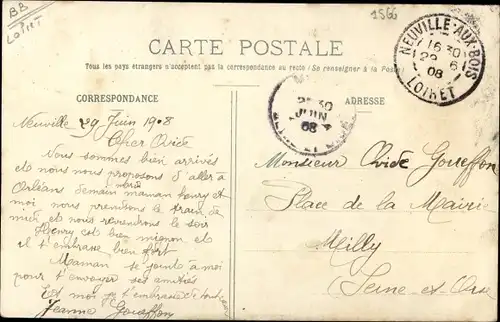 BB
LOIRET
1566
CARTE POSTALE
Tous les pays étrangers n'acceptent pas la correspondance au recto (Se renseigner à la Poste)
NEUVILLE-AUX-BOIS
16 30
29 6
08
LOIRET
CORRESPONDANCE
ADRESSE
30
JUIN
08
Neuville 29 Juin 1908
Cher Ovide
Nous sommes bien arrivés
et nous nous proposons d'aller à
Orléans demain maman henry et
moi nous prendrons le train de
midi et nous reviendrons le soir
Henry est bien mignon et
il t'embrasse bien fort
Maman se joint à moi
pour t'envoyer ses amitiés
Et moi je t'embrasse
Jeanne Goueffon
Monsieur Ovide Goueffon
Place de la Mairie
Milly
Seine-et-Oise